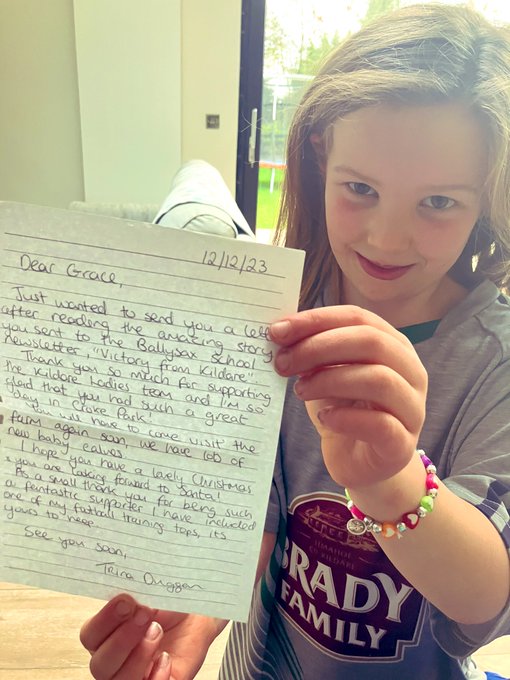 12/12/23
Dear Grace,
Just wanted to send you a
after reading the amazing story
you sent to the Ballysax School
newsletter, "Victory from Kildare".
Thank you so much for supporting
the Kildare Ladies team and I'm so
glad that you had such a great
day in Croke Park!
You will have to come visit the
farm again soon we have lots of
new baby calves.
I hope you have a lovely Christmas
you are looking forward to Santa!
As a small thank you for being such
a fantastic supporter I have included
one of my football training tops, its
yours to keep.
See you soon,
Trina Duggan
BRADY
FAMILY
TIMAHOE
CO KILDARE